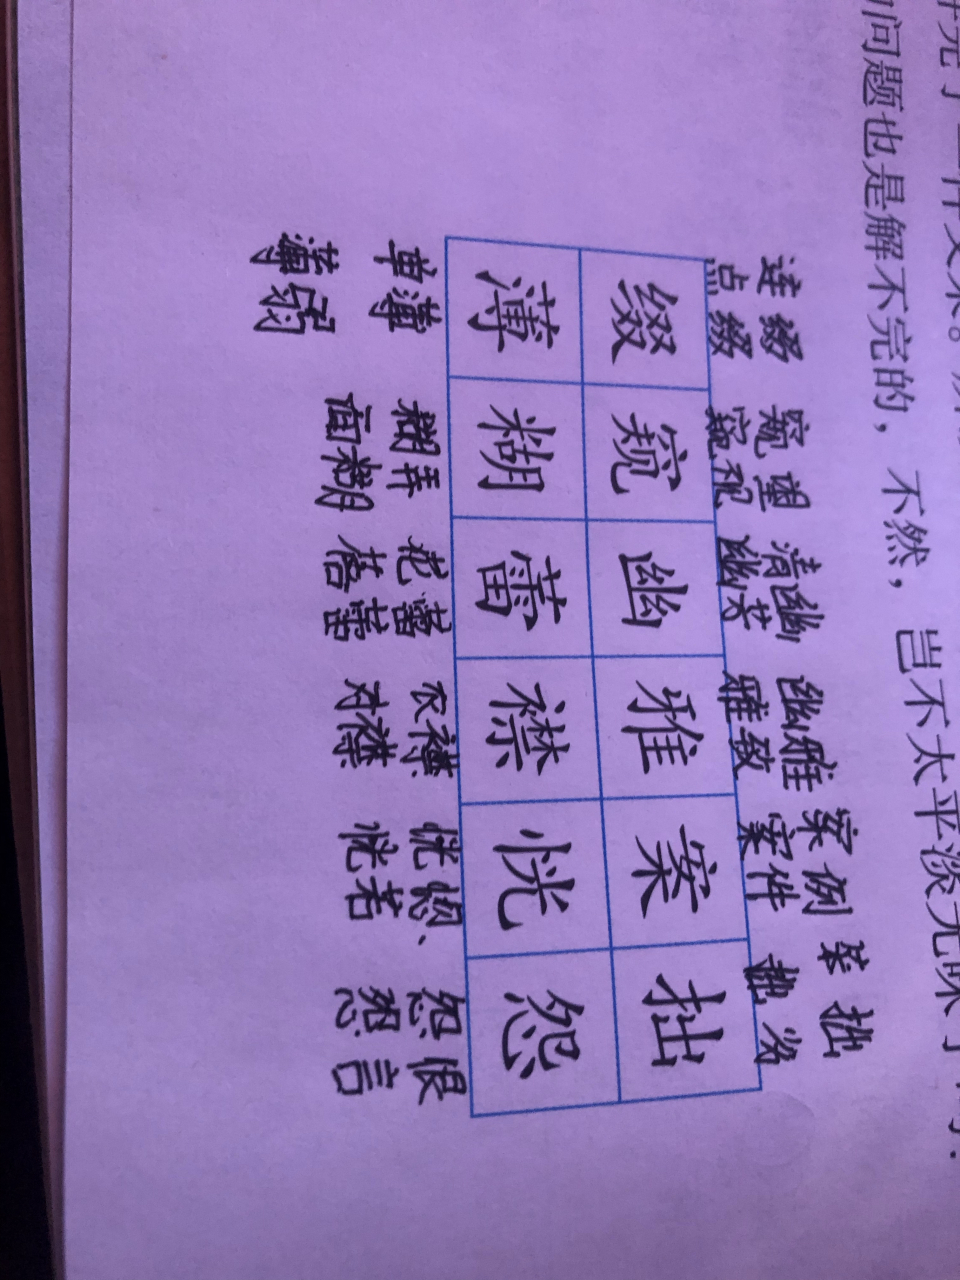 完了一件又来。
问题也是解不完的，不然，岂不太平淡无味了
连缀 窥望 清幽 幽雅 案例 笨拙
点缀 窥视 幽芳 雅致 案件 拙劣
缀 窥 幽 雅 案 拙
薄 糊 蕾 襟 恍 怨
单薄 糊弄 花蕾 衣襟 恍惚、 怨恨
薄弱 面糊 蓓蕾 对襟 恍若 怨言